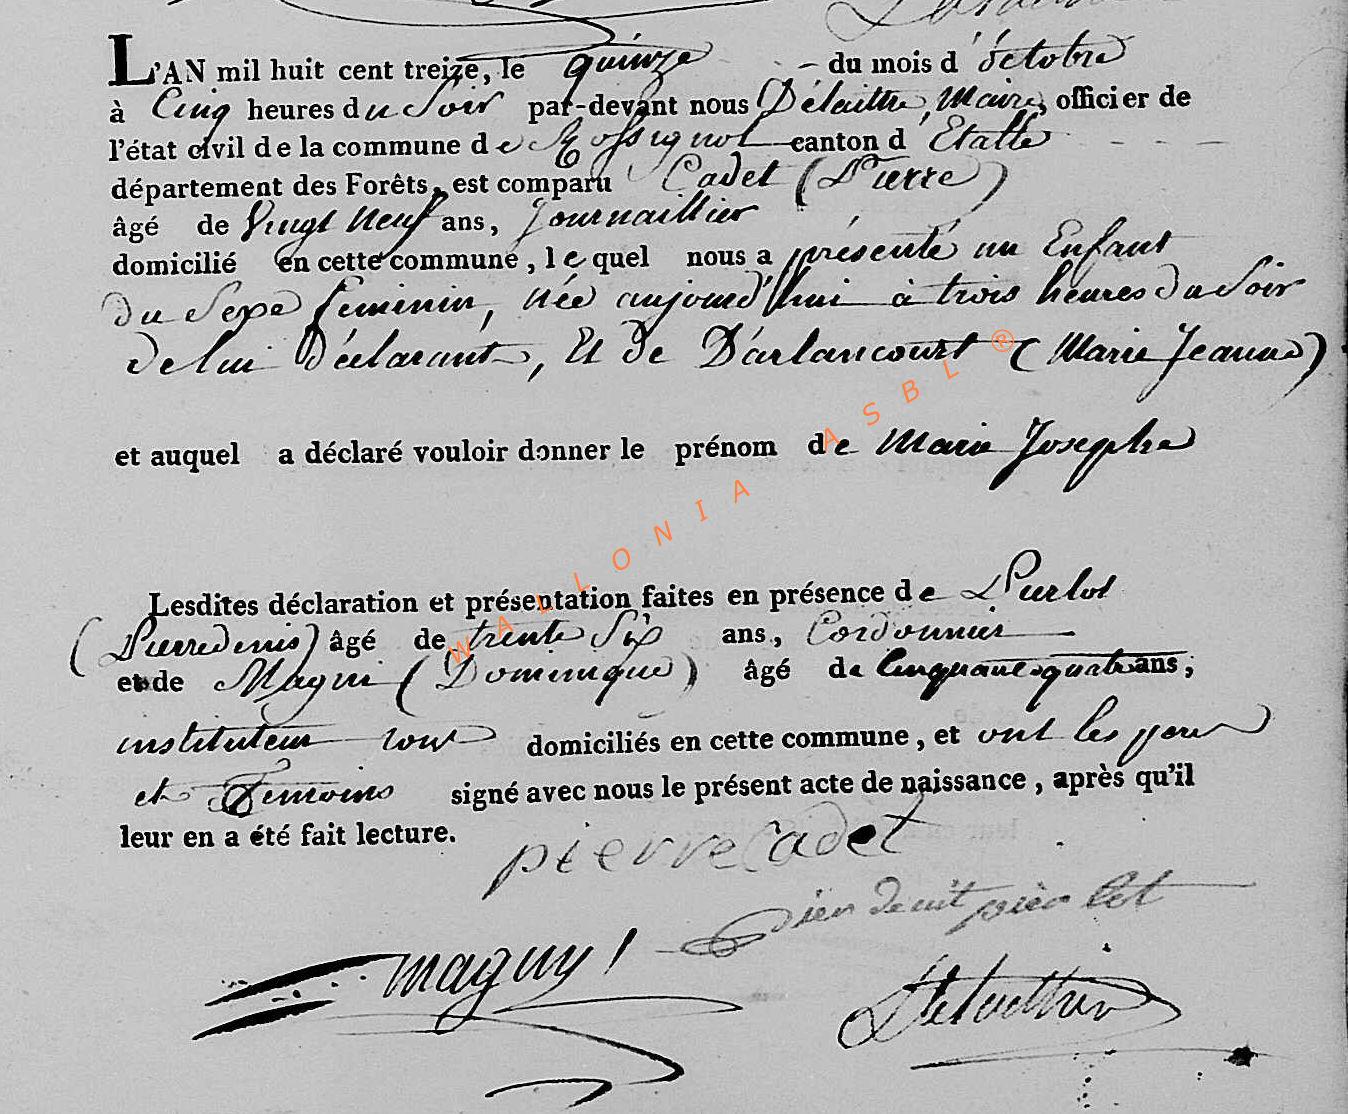 L'AN mil huit cent treize, le quinze du mois d'octobre
à Cinq heures du Soir par-devant nous Délaittre, Maire, officier de
l'état civil de la commune de Rossignol canton d'Etalle
département des Forêts, est comparu Cadet (Pierre)
âgé de Vingt Neuf ans, Journaillier
domicilié en cette commune, lequel nous a présenté un Enfant
du Sexe feminin, née aujourd'hui à trois heures du Soir
de lui Déclarant, Et de Darlancourt (Marie Jeanne)
et auquel a déclaré vouloir donner le prénom de Marie Josephe
Lesdites déclaration et présentation faites en présence de Pierlot
(Pierre denis) âgé de trente Six ans, Cordonnier
et de Magni (Dominique) âgé de Cinquante quatre ans,
instituteur tous domiciliés en cette commune, et ont les pere
et Temoins signé avec nous le présent acte de naissance, après qu'il
leur en a été fait lecture.
pierre Cadet
maguy
WALLONIA ASBL ®